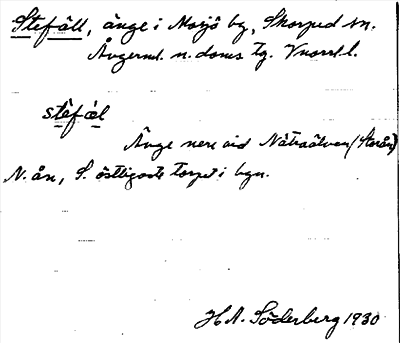 Stefäll, änge i Mosjö by, Skorped sn.
Ångerml. n. doms tg. Vnorrl. l.
stèfæ̀l
Änge nere vid Nätraälven (Storån)
N. ån, S. östligaste torpet i byn.
H.A. Söderberg 1930